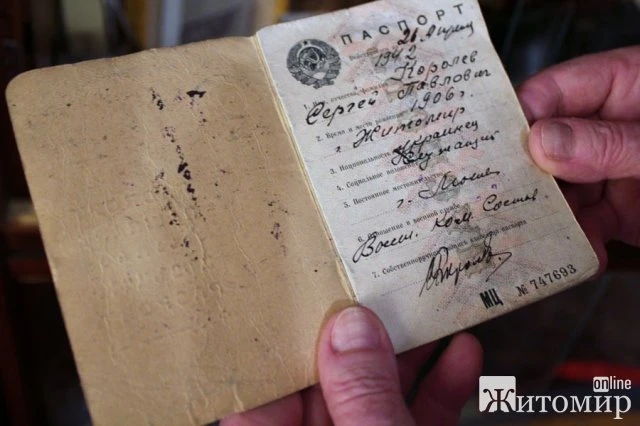 ПАСПОРТ
26 Апреля
1942
Королев
Сергей Павлович
2. Время и место рождения 1906 г.
г. Житомир
3. Национальность Украинец
4. Социальное положение Служащий
5. Постоянное местожительство
г. Москва
6. Отношение к военной службе
Воен. ком. Состав
7. Собственноручная подпись владельца паспорта
МЦ № 747693
Житомир
online